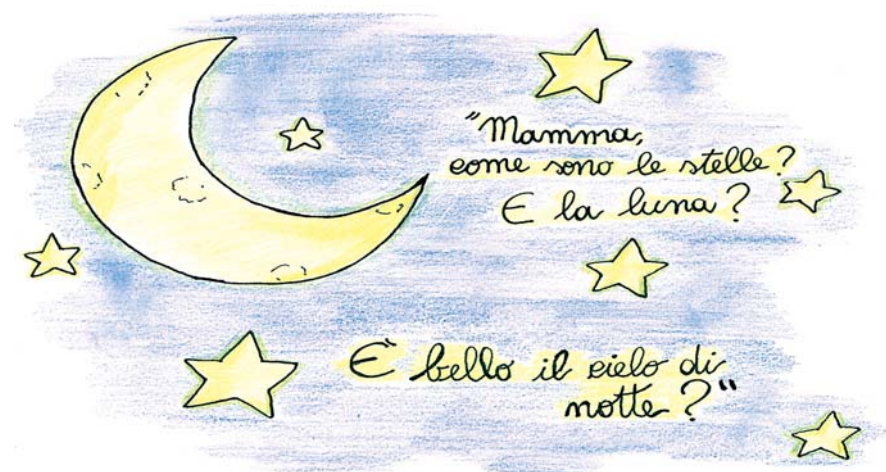 "Mamma,
come sono le stelle?
E la luna?
E' bello il cielo di
notte?"